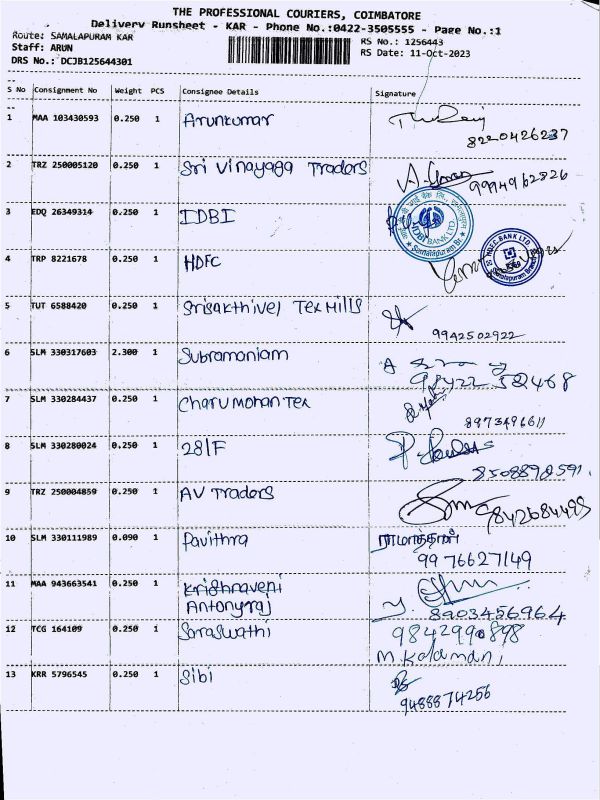 THE PROFESSIONAL COURIERS, COIMBATORE
Delivery Runsheet - KAR - Phone No.:0422-3505555 - Page No.:1
Route: SAMALAPURAM KAR
RS No.: 1256443
Staff: ARUN
RS Date: 11-Oct-2023
DRS No.: DCJB125644301
S No Consignment No Weight PCS Consignee Details Signature
1 MAA 103430593 0.250 1 Arunkumar
8220426237
2 TRZ 250005120 0.250 1 Sri Vinayaga Traders
9994962326
3 EDQ 26349314 0.250 1 IDBI
IDBI BANK LTD.
Samalapuram Br.
4 TRP 8221678 0.250 1 HDFC
HDFC BANK LTD.
Samalapuram Branch
5 TUT 6588420 0.250 1 Srisakthivel Tex Mills
9942502922
6 SLM 330317603 2.300 1 Subramaniam
7 SLM 330284437 0.250 1 Charu Mohan Tex
8973496611
8 SLM 330280024 0.250 1 281F
8508898591.
9 TRZ 250004859 0.250 1 AV Traders
9842684495
10 SLM 330111989 0.090 1 Pavithra
9976627149
11 MAA 943663541 0.250 1 Krishnaveni
Antonyraj
8903456964
12 TCG 164109 0.250 1 Saraswathi
9842990898
13 KRR 5796545 0.250 1 Sibi
9488874256